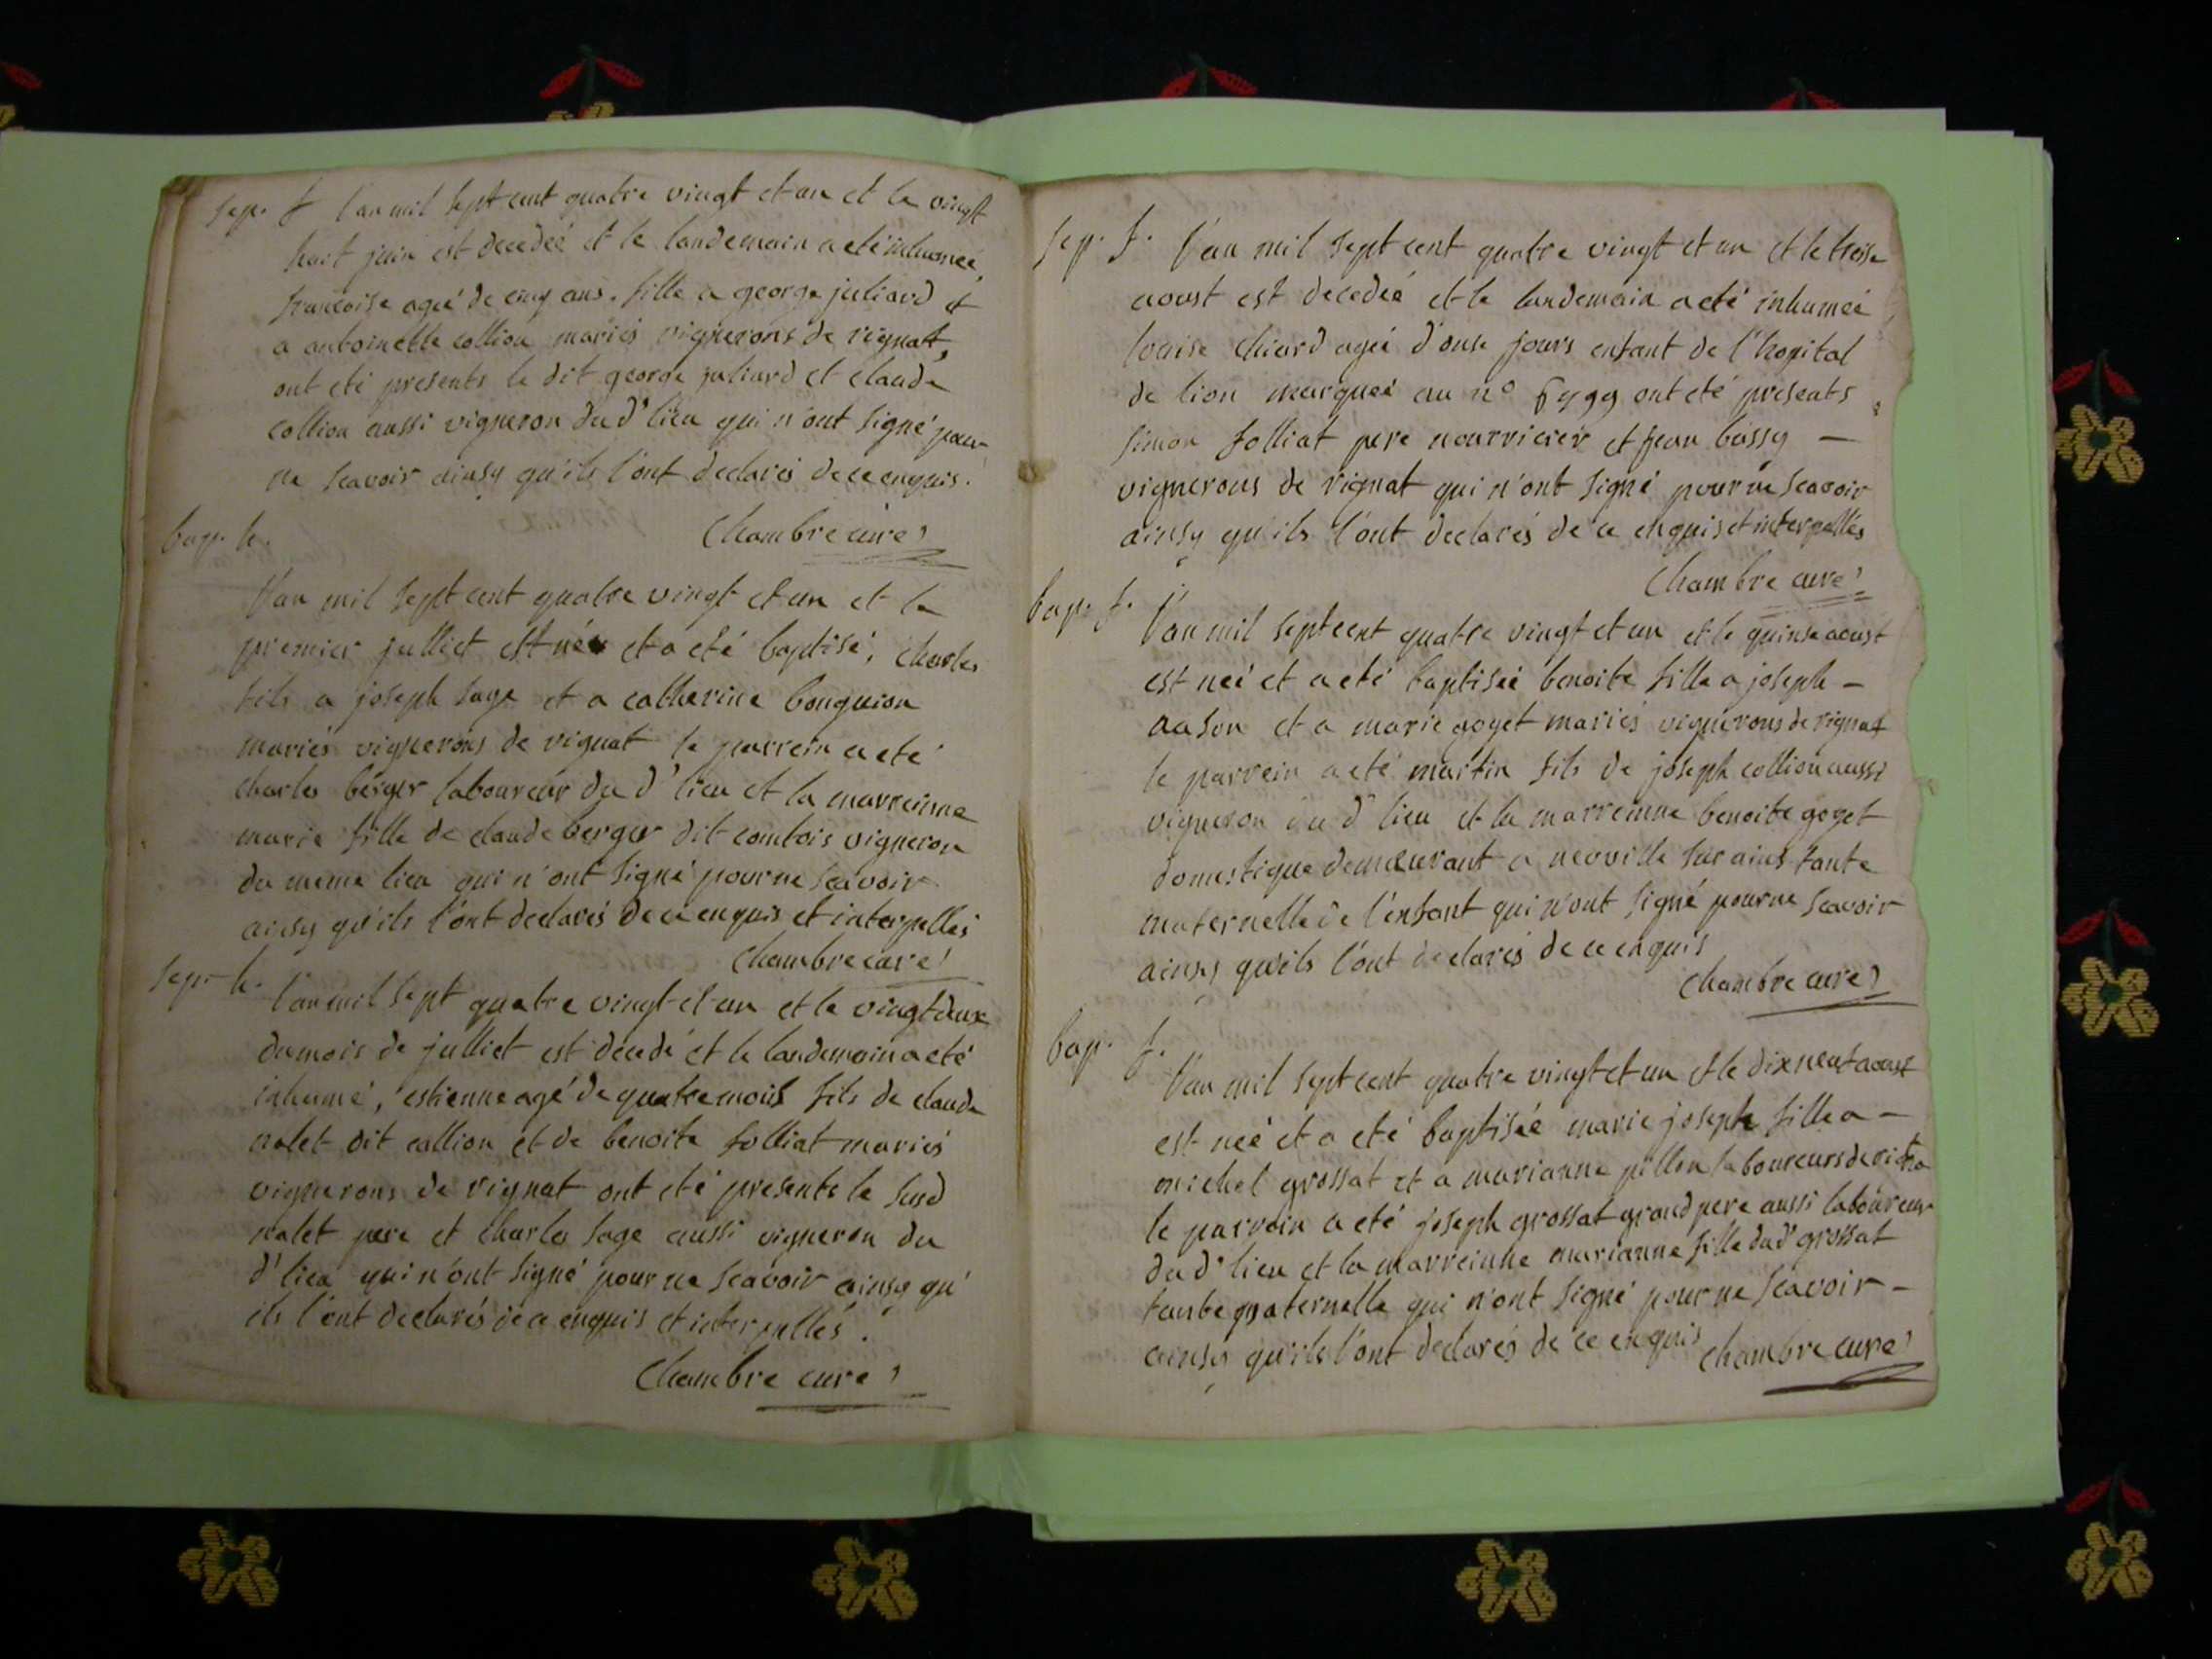 sep. f l'an mil sept cent quatre vingt et un et le vingt
huit juin est decedée et le landemain a eté inhumeé
francoise ageé de cinq ans. fille a george juliard et
a antoinette collion mariés vignerons de rignat,
ont eté presents le dit george juliard et claude
collion aussi vigneron du d' lieu qui n'ont signé pour
ne scavoir ainsy qu'ils l'ont declarés de ce enquis.
Chambre curé
bap. h.
l'an mil sept cent quatre vingt et un et le
premier julliet est né et a eté baptisé, charles
fils a joseph sage et a catherine bonguion
mariés vignerons de rignat le parrein a eté
charles berger laboureur du d' lieu et la marreinne
marie fille de claude berger dit comtois vigneron
du meme lieu qui n'ont signé pour ne scavoir
ainsy qu'ils l'ont declarés de ce enquis et interpellés
Chambre curé
sep. h. l'an mil sept quatre vingt et un et le vingt deux
du mois de julliet est decedé et le landemain a eté
inhumé, estienne agé de quatre mois fils de claude
nalet dit collion et de benoite folliat mariés
vignerons de rignat ont eté presents le susd
nalet pere et charles sage aussi vigneron du
d' lieu qui n'ont signé pour ne scavoir ainsy qu'
ils l'ont declarés de ce enquis et interpellés.
Chambre curé
sep. f. l'an mil sept cent quatre vingt et un et le treise
aoust est decedeé et le landemain a eté inhumeé
louise chiard ageé d'onse jours enfant de l'hopital
de lion marqueé au n° ont eté presents
simon folliat pere nourricier et jean bassy -
vignerons de rignat qui n'ont signé pour ne scavoir
ainsy qu'ils l'ont declarés de ce enquis et interpellés
Chambre curé
bap. f. l'an mil sept cent quatre vingt et un et le quinse aoust
est neé et a eté baptiseé benoite fille a joseph -
et a marie goyet mariés vignerons de rignat
le parrein a eté martin fils de joseph collion aussi
vigneron du d' lieu et la marreinne benoite goyet
domestique demeurant a neuville sur ains tante
maternelle de l'enfant qui n'ont signé pour ne scavoir
ainsy qu'ils l'ont declarés de ce enquis
Chambre curé
bap. f.
l'an mil sept cent quatre vingt et un et le dix neuf aoust
est neé et a eté baptiseé marie joseph fille a -
michel grossat et a marianne pillon laboureurs de
le parrein a eté joseph grossat grand pere aussi laboureur
du d' lieu et la marreinne marianne fille du d' grossat
tante maternelle qui n'ont signé pour ne scavoir -
ainsy qu'ils l'ont declarés de ce enquis Chambre curé